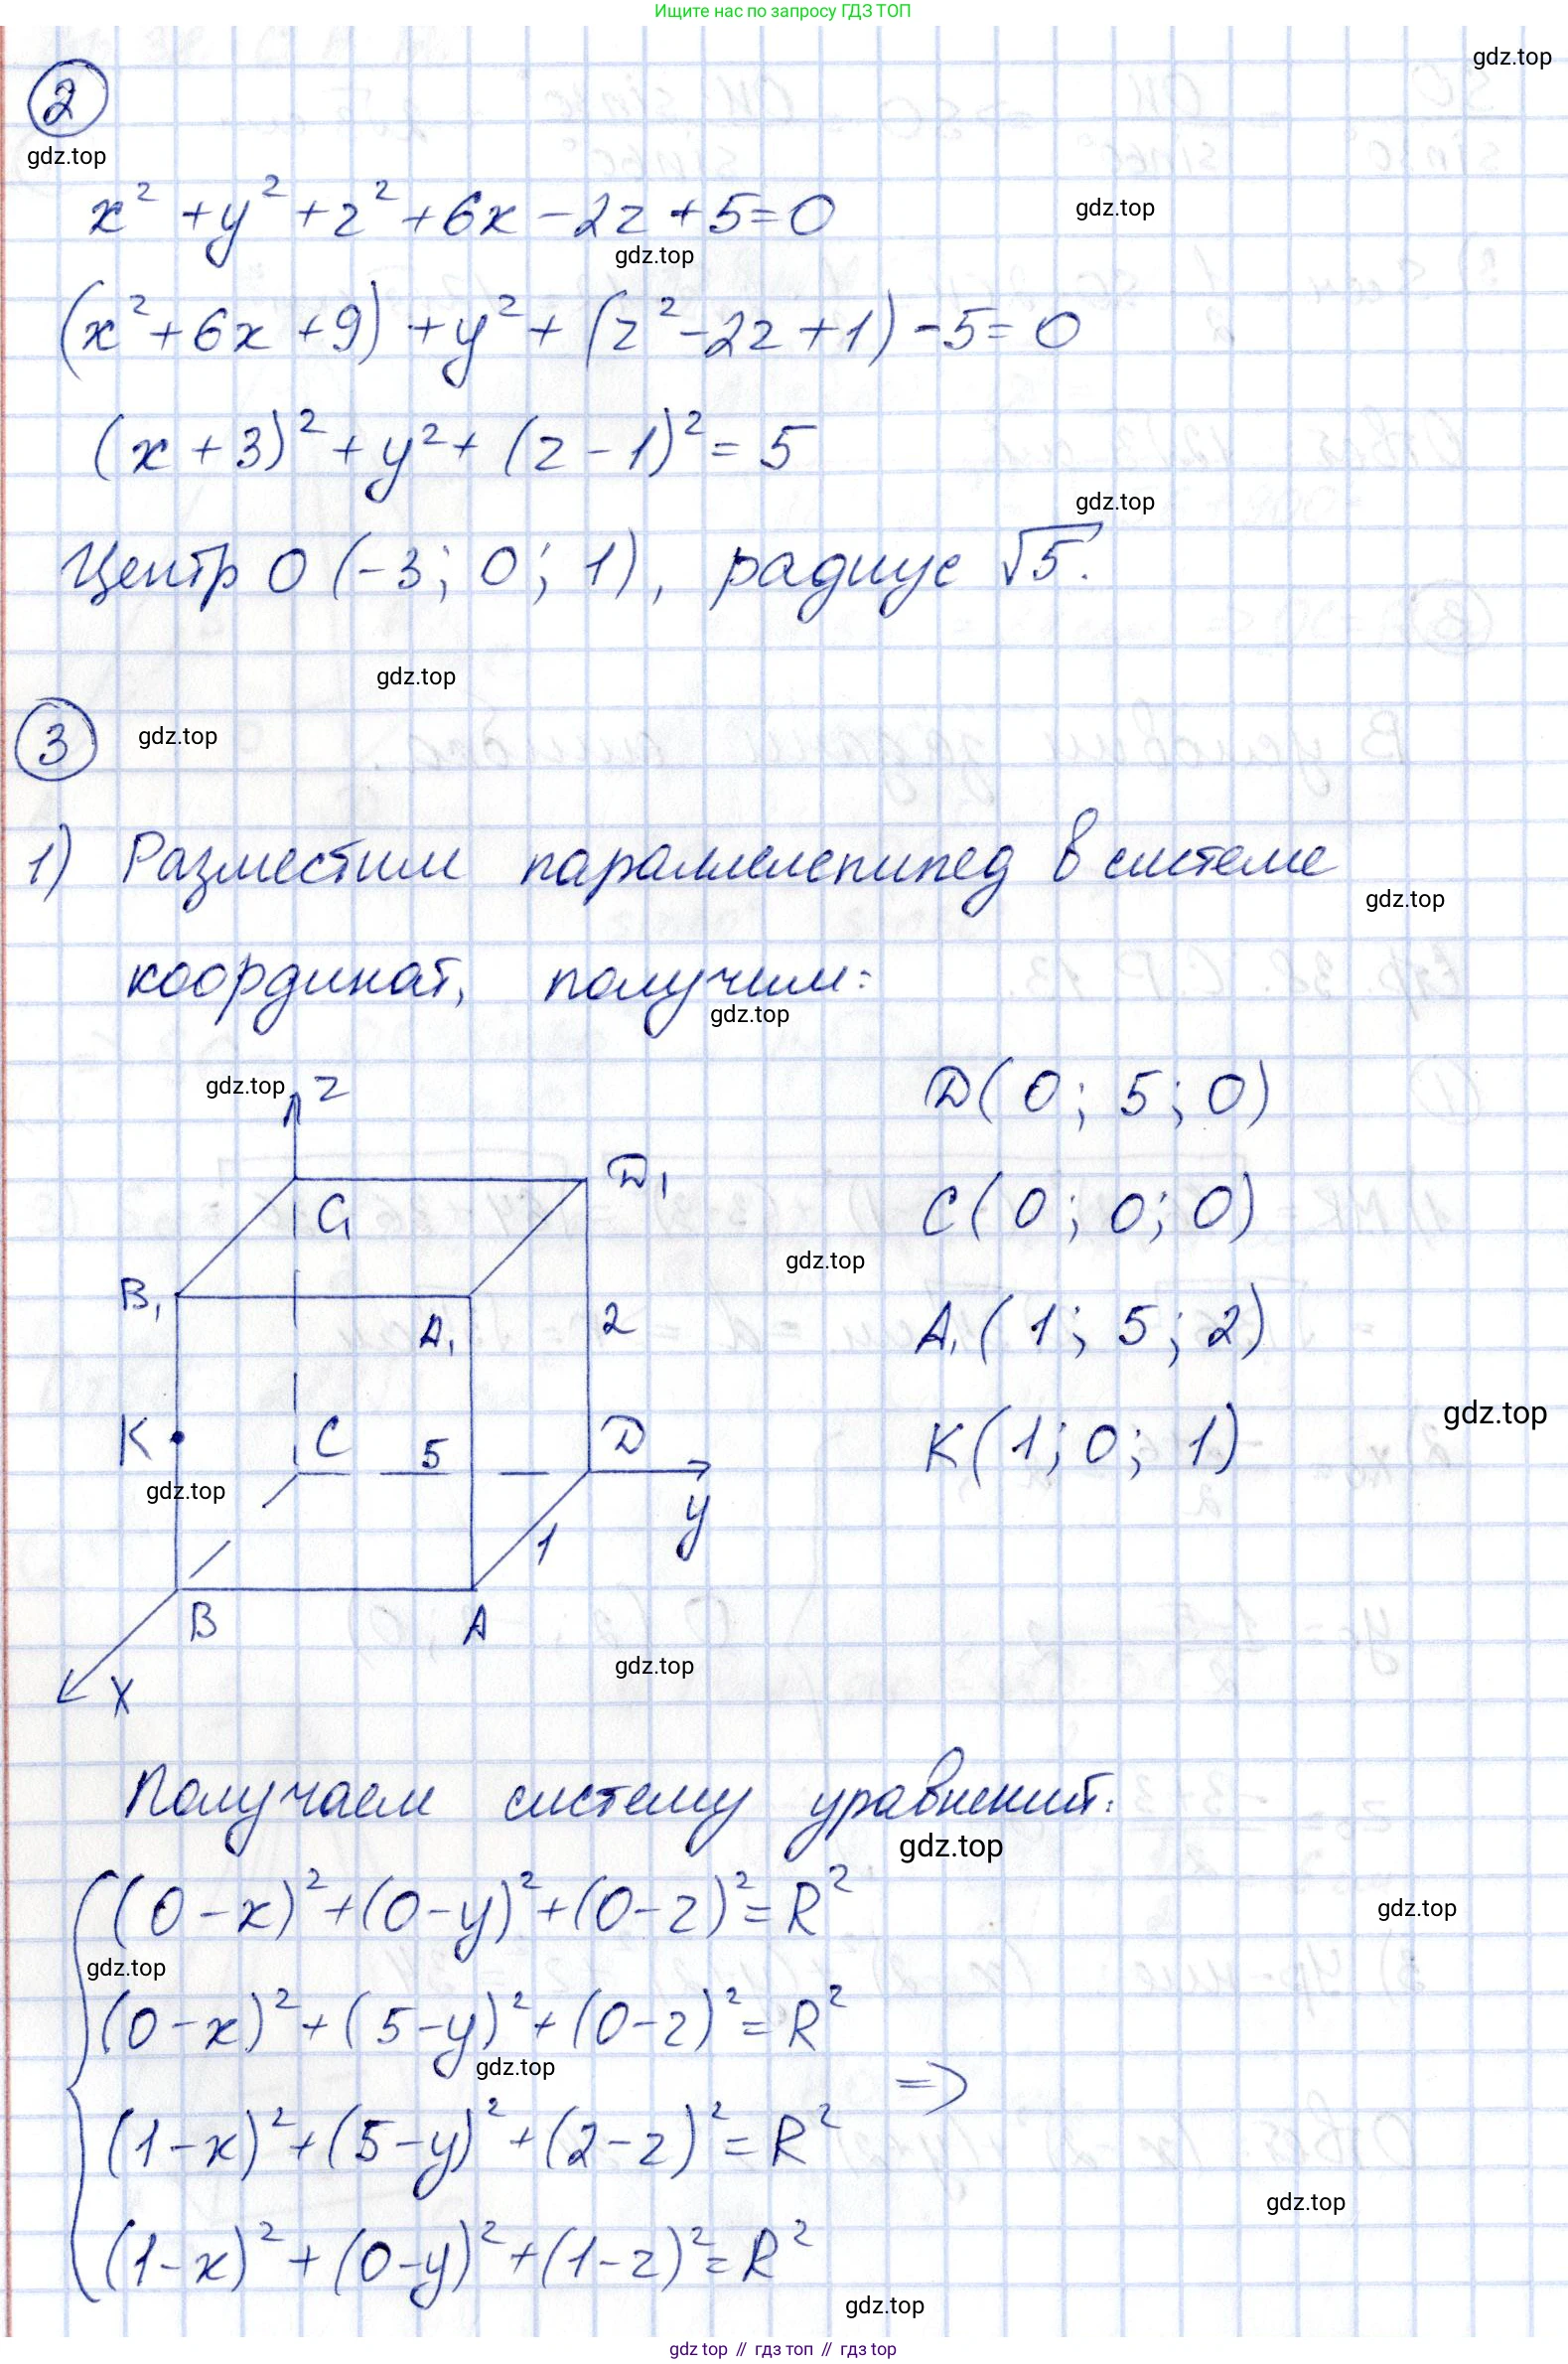 Ищите нас по запросу ГДЗ ТОП
gdz.top
2
gdz.top
x² + y² + z² + 6x - 2z + 5 = 0
gdz.top
gdz.top
(x² + 6x + 9) + y² + (z² - 2z + 1) - 5 = 0
(x + 3)² + y² + (z - 1)² = 5
gdz.top
Центр O (-3; 0; 1), радиус √5.
gdz.top
3
gdz.top
1) Разместим параллелепипед в системе
gdz.top
координат, получим:
gdz.top
gdz.top
z
D(0; 5; 0)
D₁
C₁
C(0; 0; 0)
gdz.top
B₁
A₁
2
A₁(1; 5; 2)
gdz.top
K
C
5
D
K(1; 0; 1)
gdz.top
y
1
B
A
gdz.top
x
Получаем систему уравнений:
gdz.top
(0-x)² + (0-y)² + (0-z)² = R²
gdz.top
gdz.top
(0-x)² + (5-y)² + (0-z)² = R²
gdz.top
=>
(1-x)² + (5-y)² + (2-z)² = R²
gdz.top
(1-x)² + (0-y)² + (1-z)² = R²
gdz.top
gdz top // гдз топ // гдз top